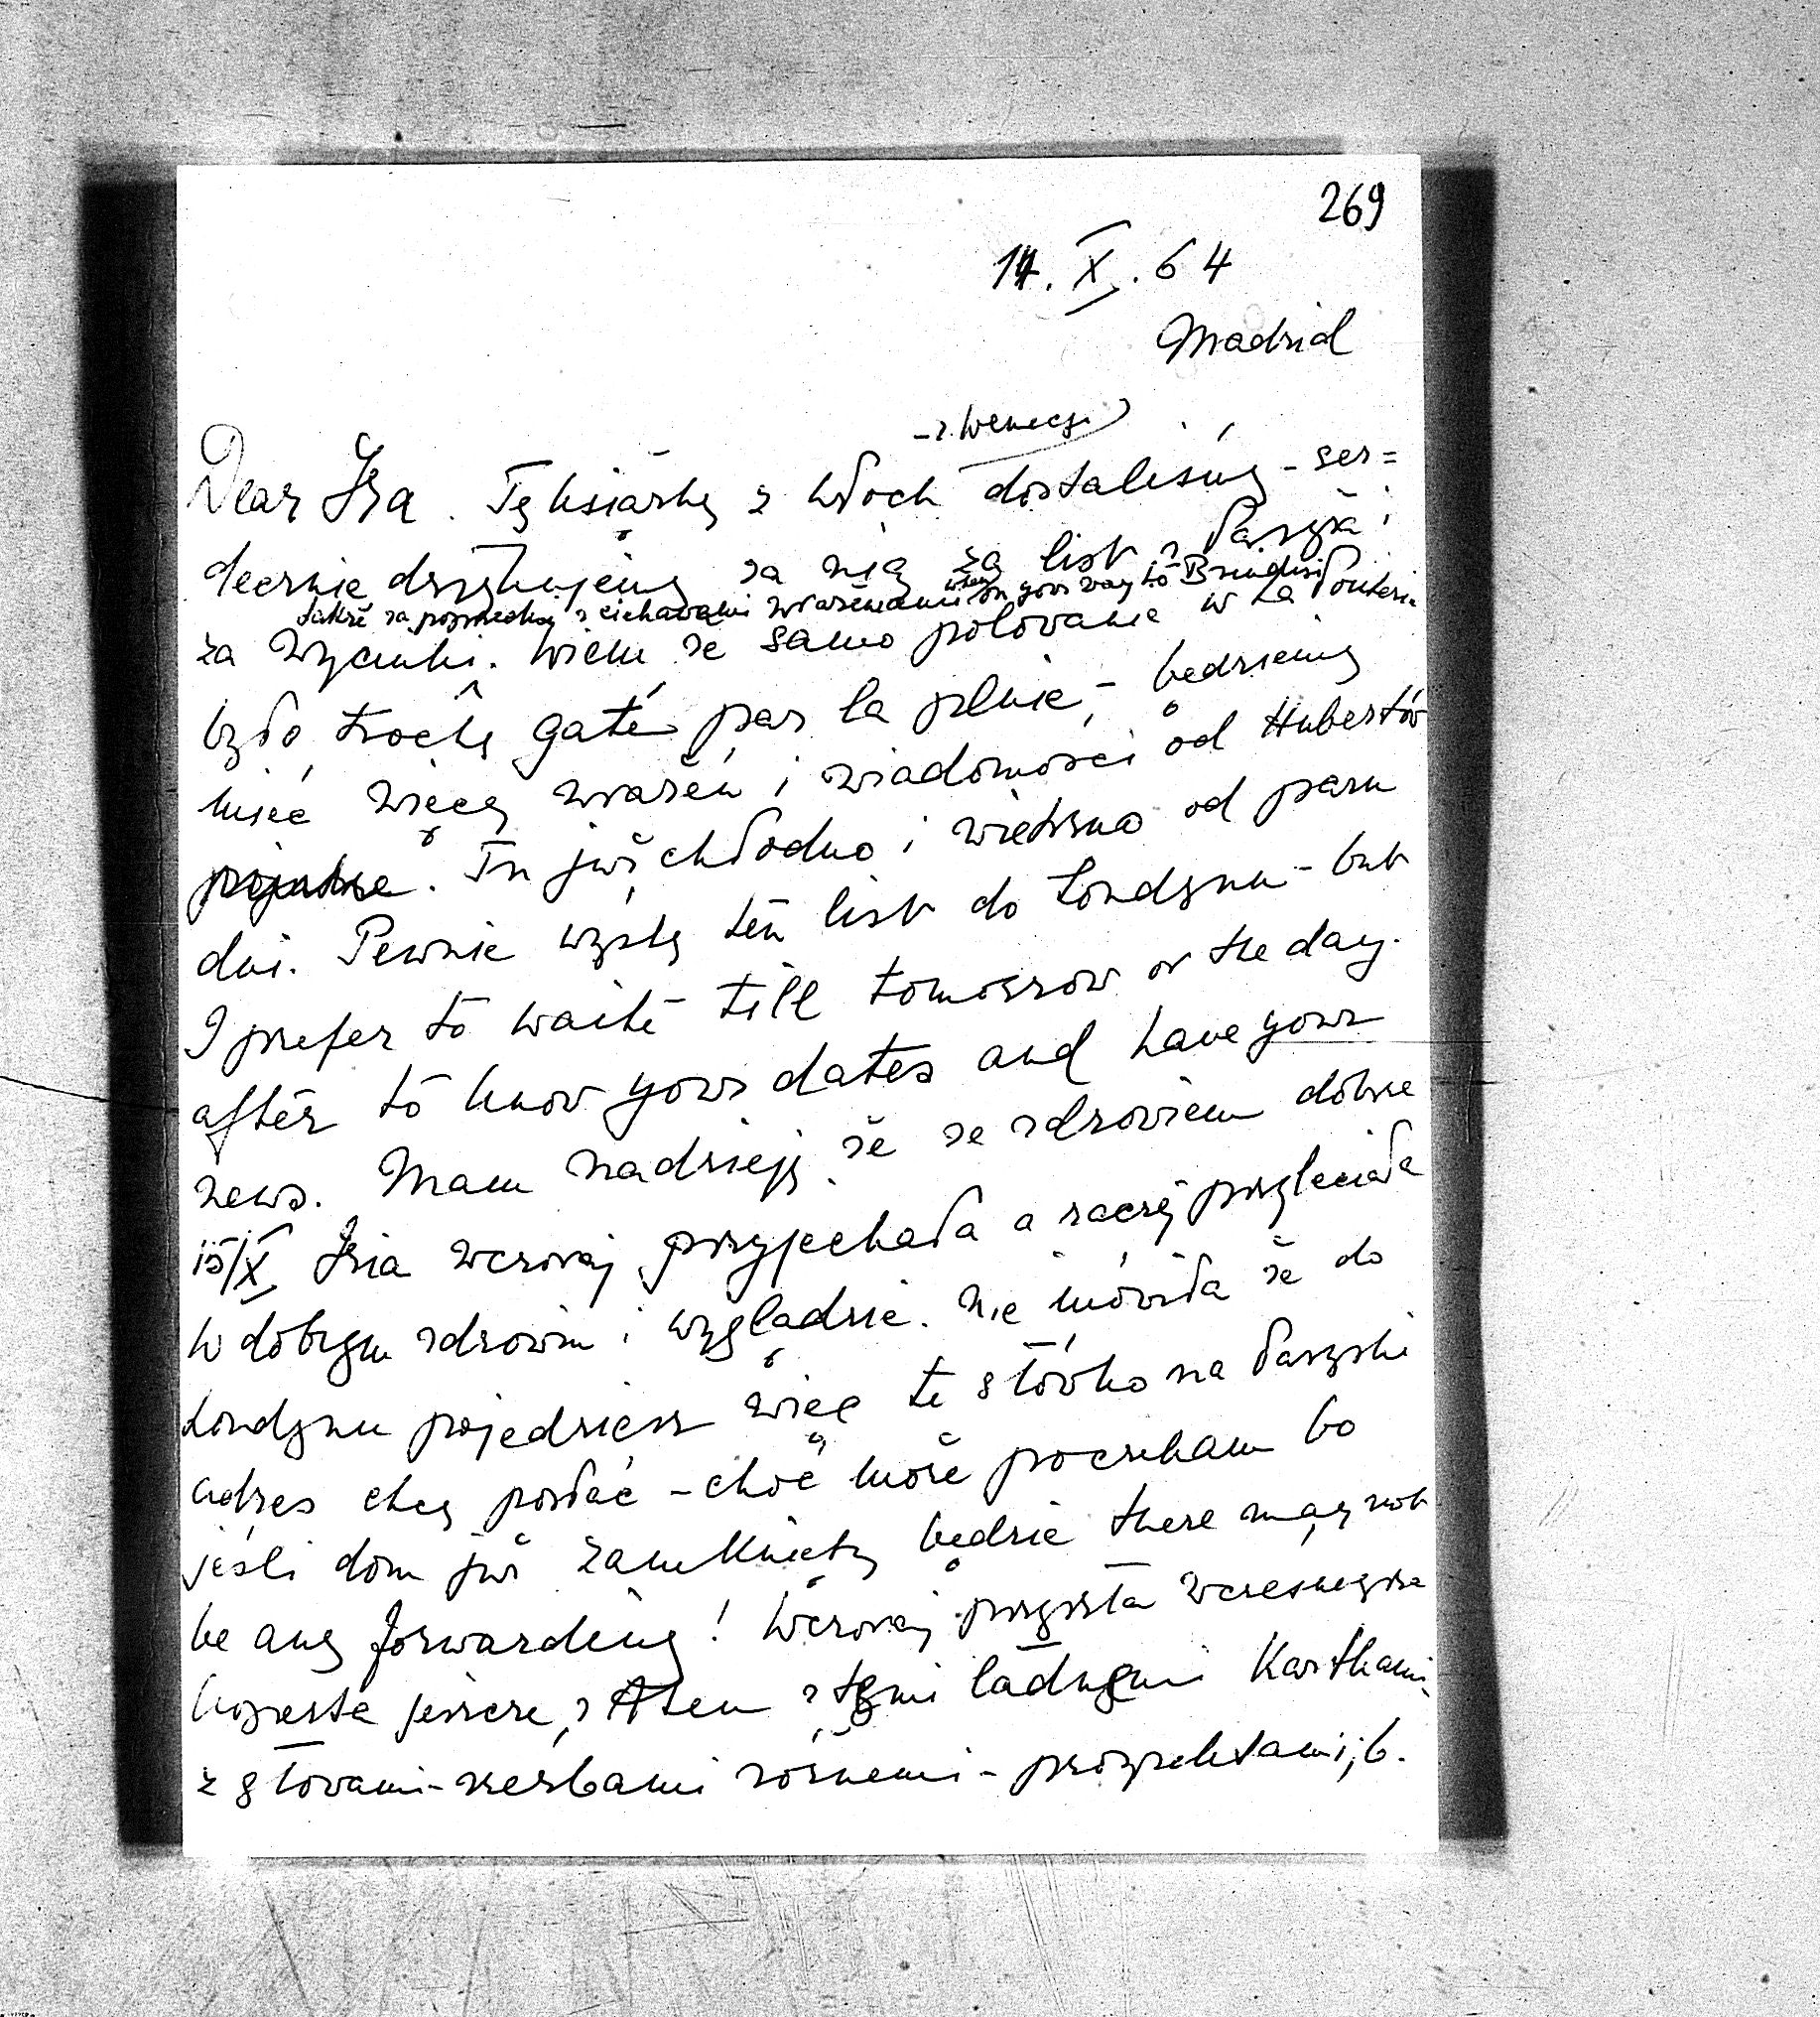 269
14.X.64
Madrid
- z Wenecji
Dear Iza. Tę książkę z Włoch dostaliśmy - ser=
decznie dziękujemy za nią za list z Paryża i
także za poprzedni z ciekawemi wrażeniami on your way to Brindisi
za wycinki. Wiem że samo polowanie w La
było trochę gaté par la pluie, - będziemy
mieć więcej wrażeń i wiadomości od Hubertów
. Tu już chłodno i wietrzno od paru
dni. Pewnie wyślę ten list do Londynu - but
I prefer to waite till tomorrow or the day
after to know your dates and have your
news. Mam nadzieję że ze zdrowiem dobrze
15/X Izia wczoraj przyjechała a raczej przyleciała
w dobrym zdrowiu i wyglądzie. Nie mówiła że do
Londynu pojedziesz więc te słówko na Paryski
adres chcę posłać - choć może poczekam bo
jeśli dom już zamknięty będzie there may not
be any forwarding! Wczoraj przyszła wcześniejsza
koperta jeszcze z Aten z tymi ładnemi kartkami
z głowami - rzeźbami różnemi - prospektami; b.